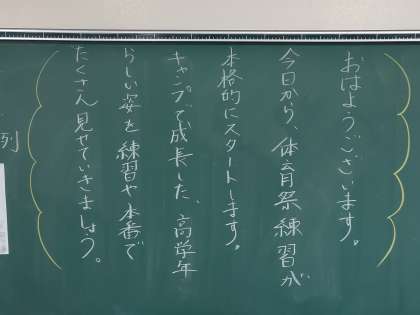 おはようございます。
今日から、体育祭練習が
本格的にスタートします。
キャンプで成長した、高学年
らしい姿を練習や本番で
たくさん見せていきましょう。
列